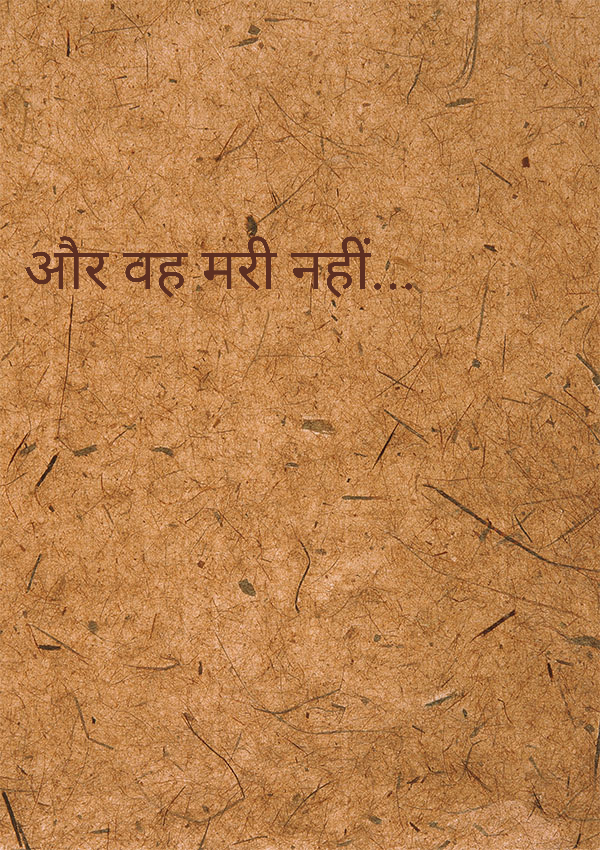 और वह मरी नहीं...